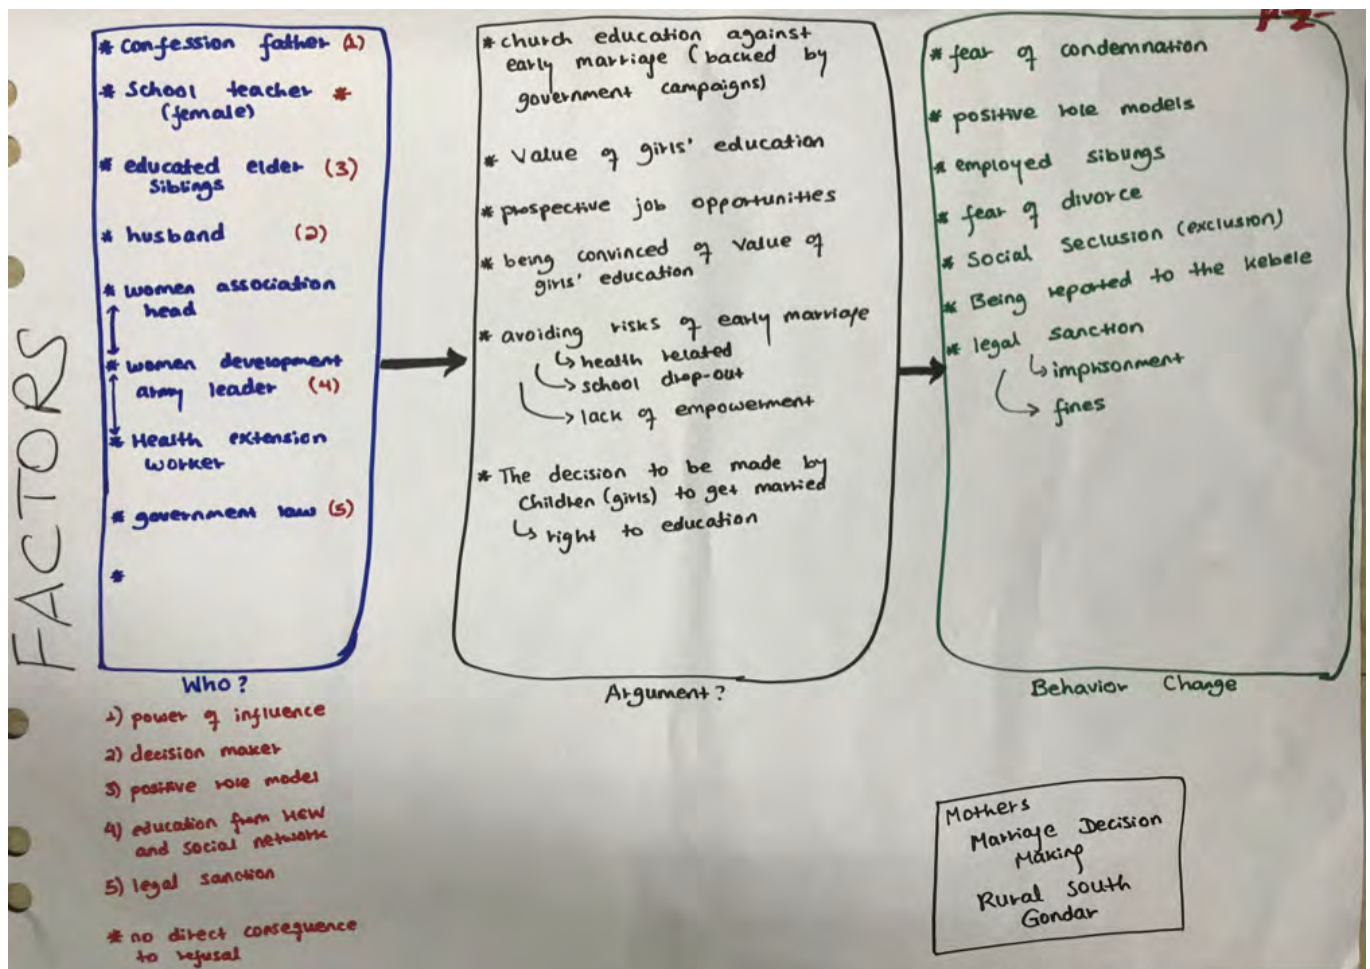 FACTORS
* Confession father (1)
* School teacher *
(female)
* educated elder (3)
siblings
* husband (2)
* women association
head
* women development
army leader (4)
* Health extension
worker
* government law (5)
*
Who?
1) power of influence
2) decision maker
3) positive role model
4) education from HEW
and social network
5) legal sanction
* no direct consequence
to refusal
* church education against
early marriage (backed by
government campaigns)
* Value of girls' education
* prospective job opportunities
* being convinced of value of
girls' education
* avoiding risks of early marriage
↳ health related
↳ school drop-out
↳ lack of empowerment
* The decision to be made by
Children (girls) to get married
↳ right to education
Argument?
* fear of condemnation
* positive role models
* employed siblings
* fear of divorce
* Social Seclusion (exclusion)
* Being reported to the kebele
* legal sanction
↳ imprisonment
↳ fines
Behavior Change
Mothers
Marriage Decision
Making
Rural South
Gondar